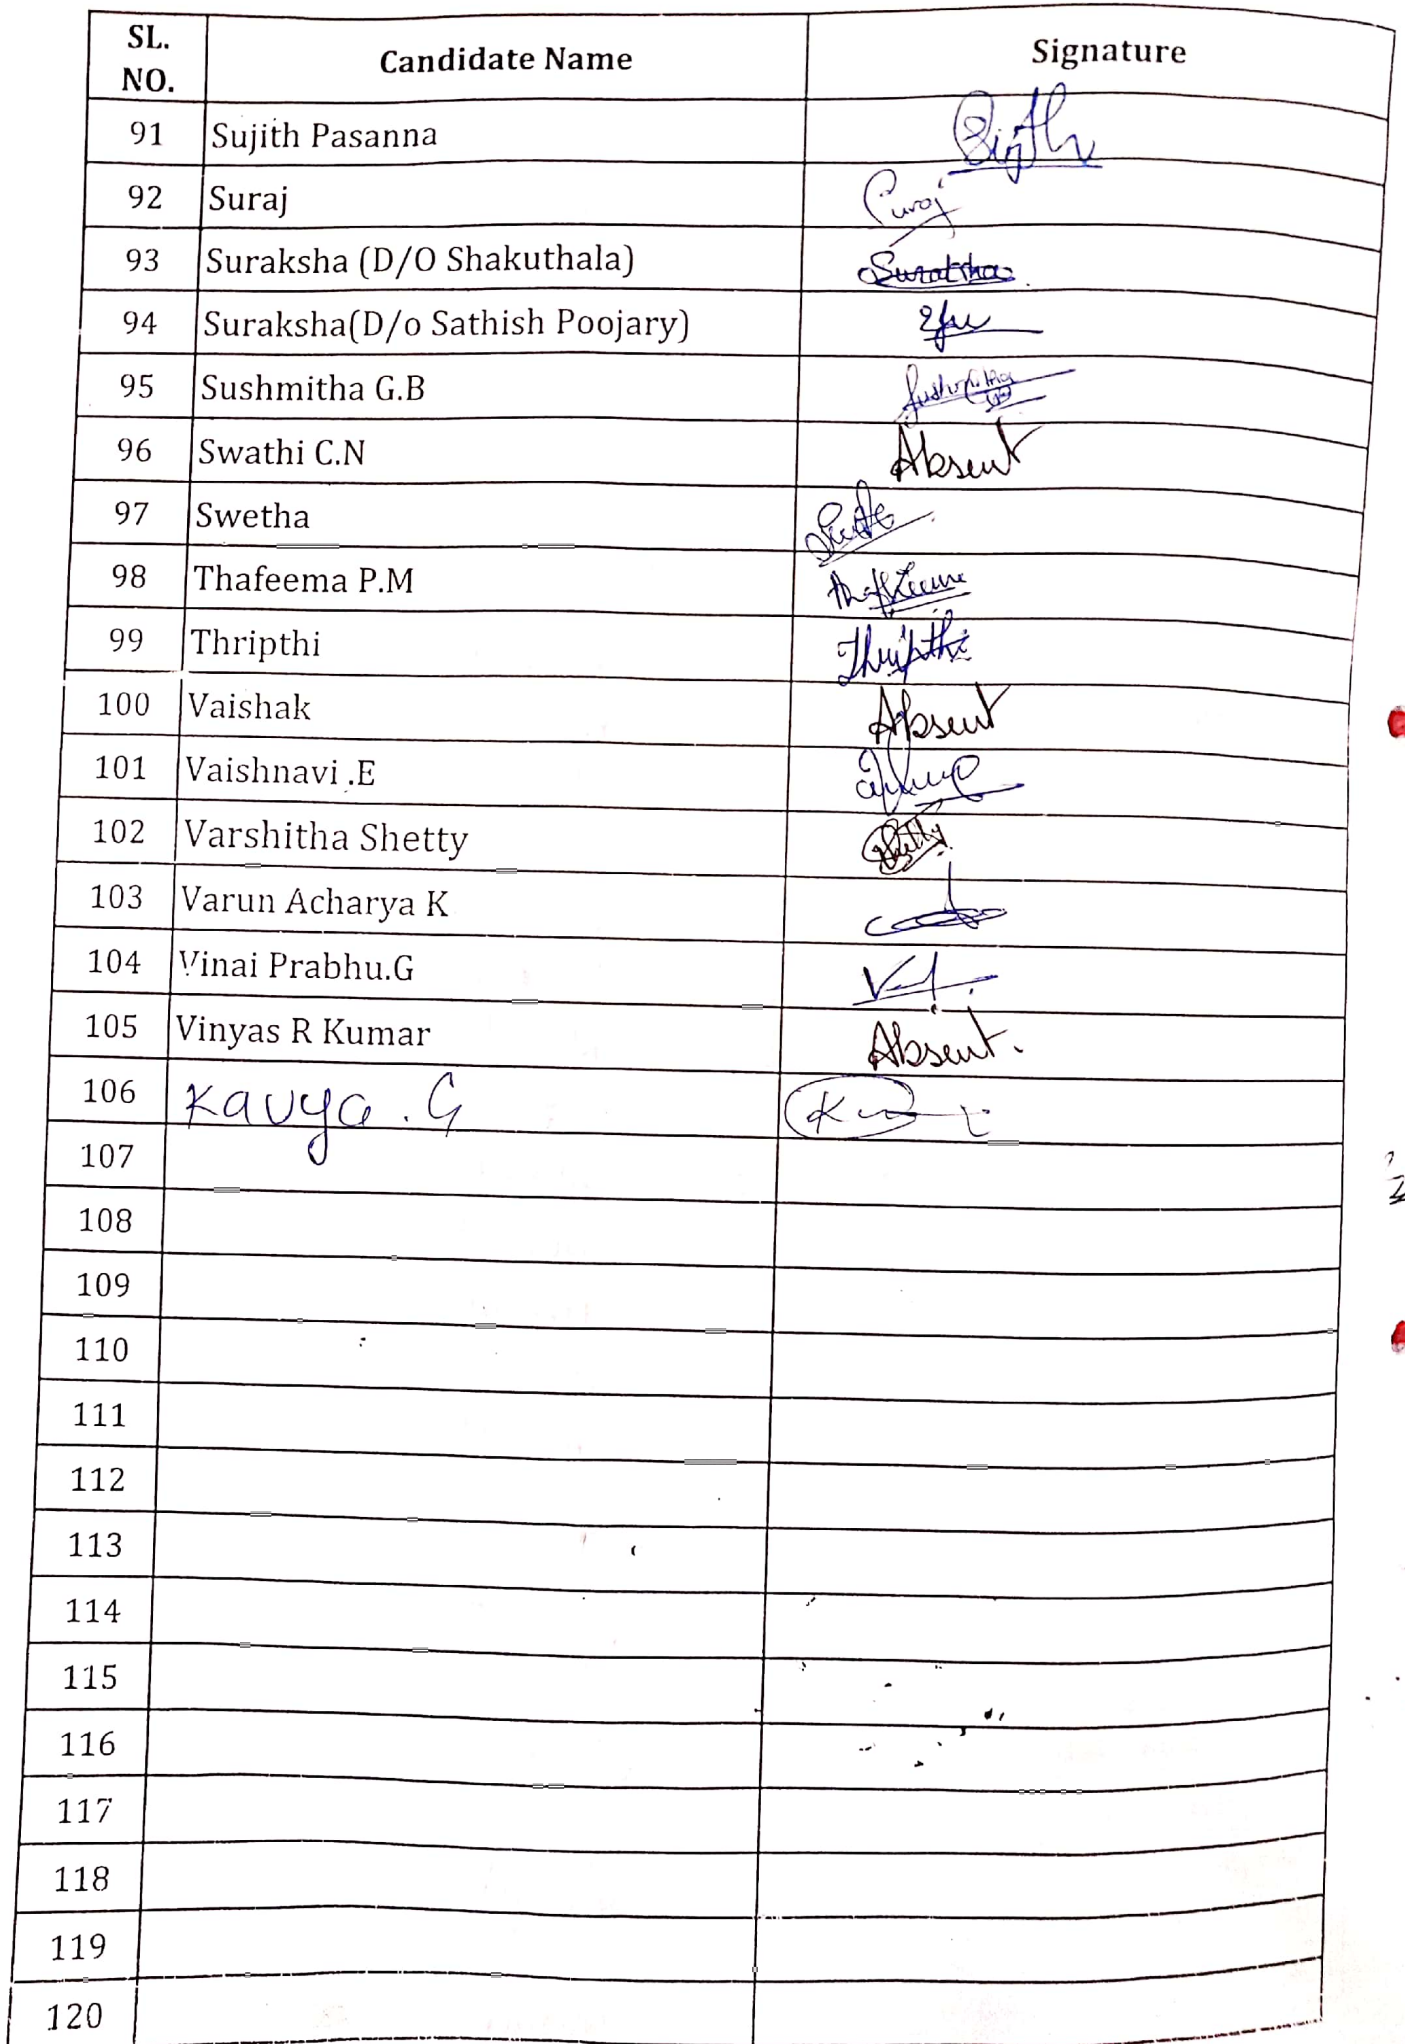 SL. NO. Candidate Name Signature
91 Sujith Pasanna
92 Suraj Suraj
93 Suraksha (D/O Shakuthala)
94 Suraksha(D/o Sathish Poojary)
95 Sushmitha G.B
96 Swathi C.N Absent
97 Swetha
98 Thafeema P.M
99 Thripthi Thripthi
100 Vaishak Absent
101 Vaishnavi .E
102 Varshitha Shetty
103 Varun Acharya K
104 Vinai Prabhu.G
105 Vinyas R Kumar Absent.
106 Kavya . G
107
108
109
110
111
112
113
114
115
116
117
118
119
120